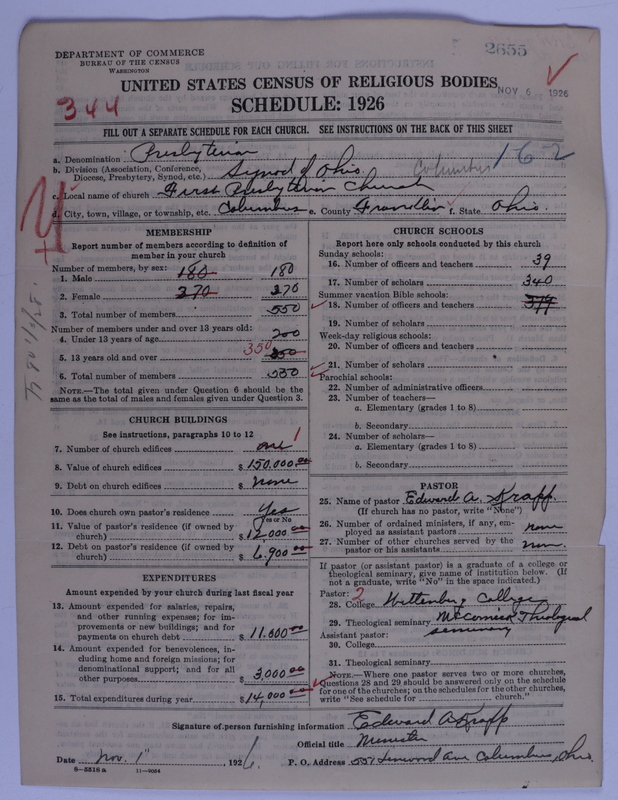 2655
DEPARTMENT OF COMMERCE
BUREAU OF THE CENSUS
WASHINGTON
UNITED STATES CENSUS OF RELIGIOUS BODIES
NOV 5 1926
344
SCHEDULE: 1926
FILL OUT A SEPARATE SCHEDULE FOR EACH CHURCH. SEE INSTRUCTIONS ON THE BACK OF THIS SHEET
a. Denomination Presbyterian
162
b. Division (Association, Conference, Diocese, Presbytery, Synod, etc.) Synod of Ohio Columbus
c. Local name of church First Presbyterian Church
d. City, town, village, or township, etc. Columbus e. County Franklin f. State Ohio.
MEMBERSHIP
Report number of members according to definition of
member in your church
Number of members, by sex:
1. Male 180 180
2. Female 270 370
3. Total number of members 550
Number of members under and over 13 years old:
4. Under 13 years of age 200
5. 13 years old and over 350 350
6. Total number of members 550
NOTE.—The total given under Question 6 should be
same as the total of males and females given under Question 3.
CHURCH BUILDINGS
See instructions, paragraphs 10 to 12
7. Number of church edifices one 1
8. Value of church edifices $ 150.000.00
9. Debt on church edifices $ none
10. Does church own pastor's residence Yes
Yes or No
11. Value of pastor's residence (if owned by
church) $ 12,000.00
12. Debt on pastor's residence (if owned by
church) $ 6,900.00
EXPENDITURES
Amount expended by your church during last fiscal year
13. Amount expended for salaries, repairs,
and other running expenses; for im-
provements or new buildings; and for
payments on church debt $ 11.000.00
14. Amount expended for benevolences, in-
cluding home and foreign missions; for
denominational support; and for all
other purposes $ 3,000.00
15. Total expenditures during year $ 14,000.00
CHURCH SCHOOLS
Report here only schools conducted by this church
Sunday schools:
16. Number of officers and teachers 39
17. Number of scholars 340
Summer vacation Bible schools:
18. Number of officers and teachers 379
19. Number of scholars
Week-day religious schools:
20. Number of officers and teachers
21. Number of scholars
Parochial schools:
22. Number of administrative officers
23. Number of teachers—
a. Elementary (grades 1 to 8)
b. Secondary
24. Number of scholars—
a. Elementary (grades 1 to 8)
b. Secondary
PASTOR
25. Name of pastor Edward A. Krapp.
(If church has no pastor, write "None")
26. Number of ordained ministers, if any, em-
ployed as assistant pastors none
27. Number of other churches served by the
pastor or his assistants none.
If pastor (or assistant pastor) is a graduate of a college or
theological seminary, give name of institution below. (If
not a graduate, write "No" in the space indicated.)
Pastor: 2
28. College Wittenberg College
29. Theological seminary McCormick Theological
seminary
Assistant pastor:
30. College
31. Theological seminary
NOTE.—Where one pastor serves two or more churches,
Questions 28 and 29 should be answered only on the schedule
for one of the churches; on the schedules for the other churches,
write "See schedule for church."
Signature of person furnishing information Edward A Krapp
Official title Minister
Date Nov. 1st, 1926. P. O. Address 551 Linwood Ave Columbus, Ohio.
8-5516a 11-9034